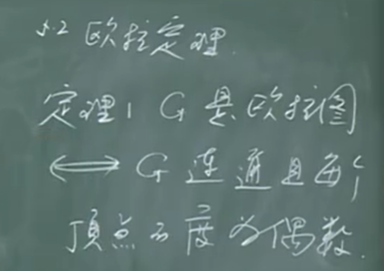 5.2 欧拉定理.
定理1 G是欧拉图
⟺ G连通且每个
顶点的度为偶数.